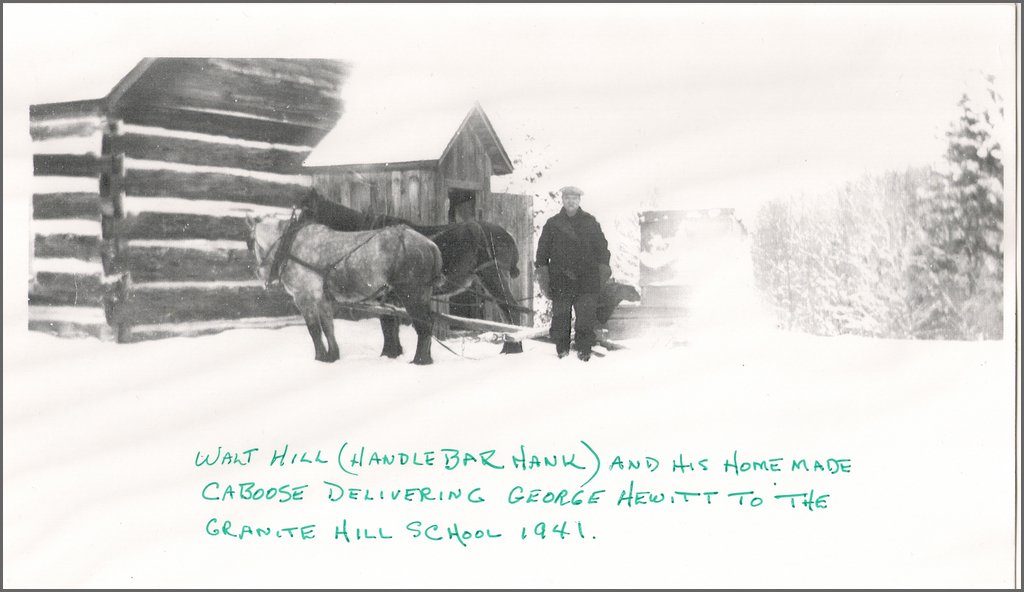 WALT HILL (HANDLEBAR HANK) AND HIS HOME MADE
CABOOSE DELIVERING GEORGE HEWITT TO THE
GRANITE HILL SCHOOL 1941.